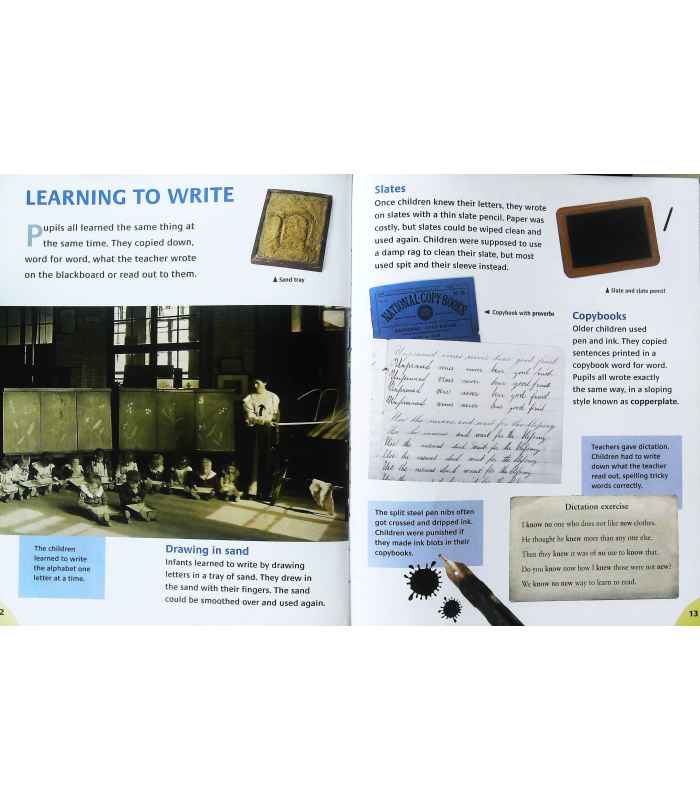 LEARNING TO WRITE
Pupils all learned the same thing at
the same time. They copied down,
word for word, what the teacher wrote
on the blackboard or read out to them.
Sand tray
The children
learned to write
the alphabet one
letter at a time.
Drawing in sand
Infants learned to write by drawing
letters in a tray of sand. They drew in
the sand with their fingers. The sand
could be smoothed over and used again.
2
Slates
Once children knew their letters, they wrote
on slates with a thin slate pencil. Paper was
costly, but slates could be wiped clean and
used again. Children were supposed to use
a damp rag to clean their slate, but most
used spit and their sleeve instead.
Slate and slate pencil
NATIONAL COPY BOOKS
Copybook with proverbs
Copybooks
Older children used
pen and ink. They copied
sentences printed in a
copybook word for word.
Pupils all wrote exactly
the same way, in a sloping
style known as copperplate.
Unpruned vines never bear good fruit
Unpruned vines never bear good fruit
Unpruned vines never bear good fruit
Unpruned vines never bear good fruit
Unpruned vines never bear good fruit
Use the means and wait for the blessing
Use the means and wait for the blessing
Use the means and wait for the blessing
Use the means and wait for the blessing
Use the means and wait for the blessing
Teachers gave dictation.
Children had to write
down what the teacher
read out, spelling tricky
words correctly.
The split steel pen nibs often
got crossed and dripped ink.
Children were punished if
they made ink blots in their
copybooks.
Dictation exercise
I know no one who does not like new clothes.
He thought he knew more than any one else.
Then they knew it was of no use to know that.
Do you know now how I knew those were not new?
We know no new way to learn to read.
13